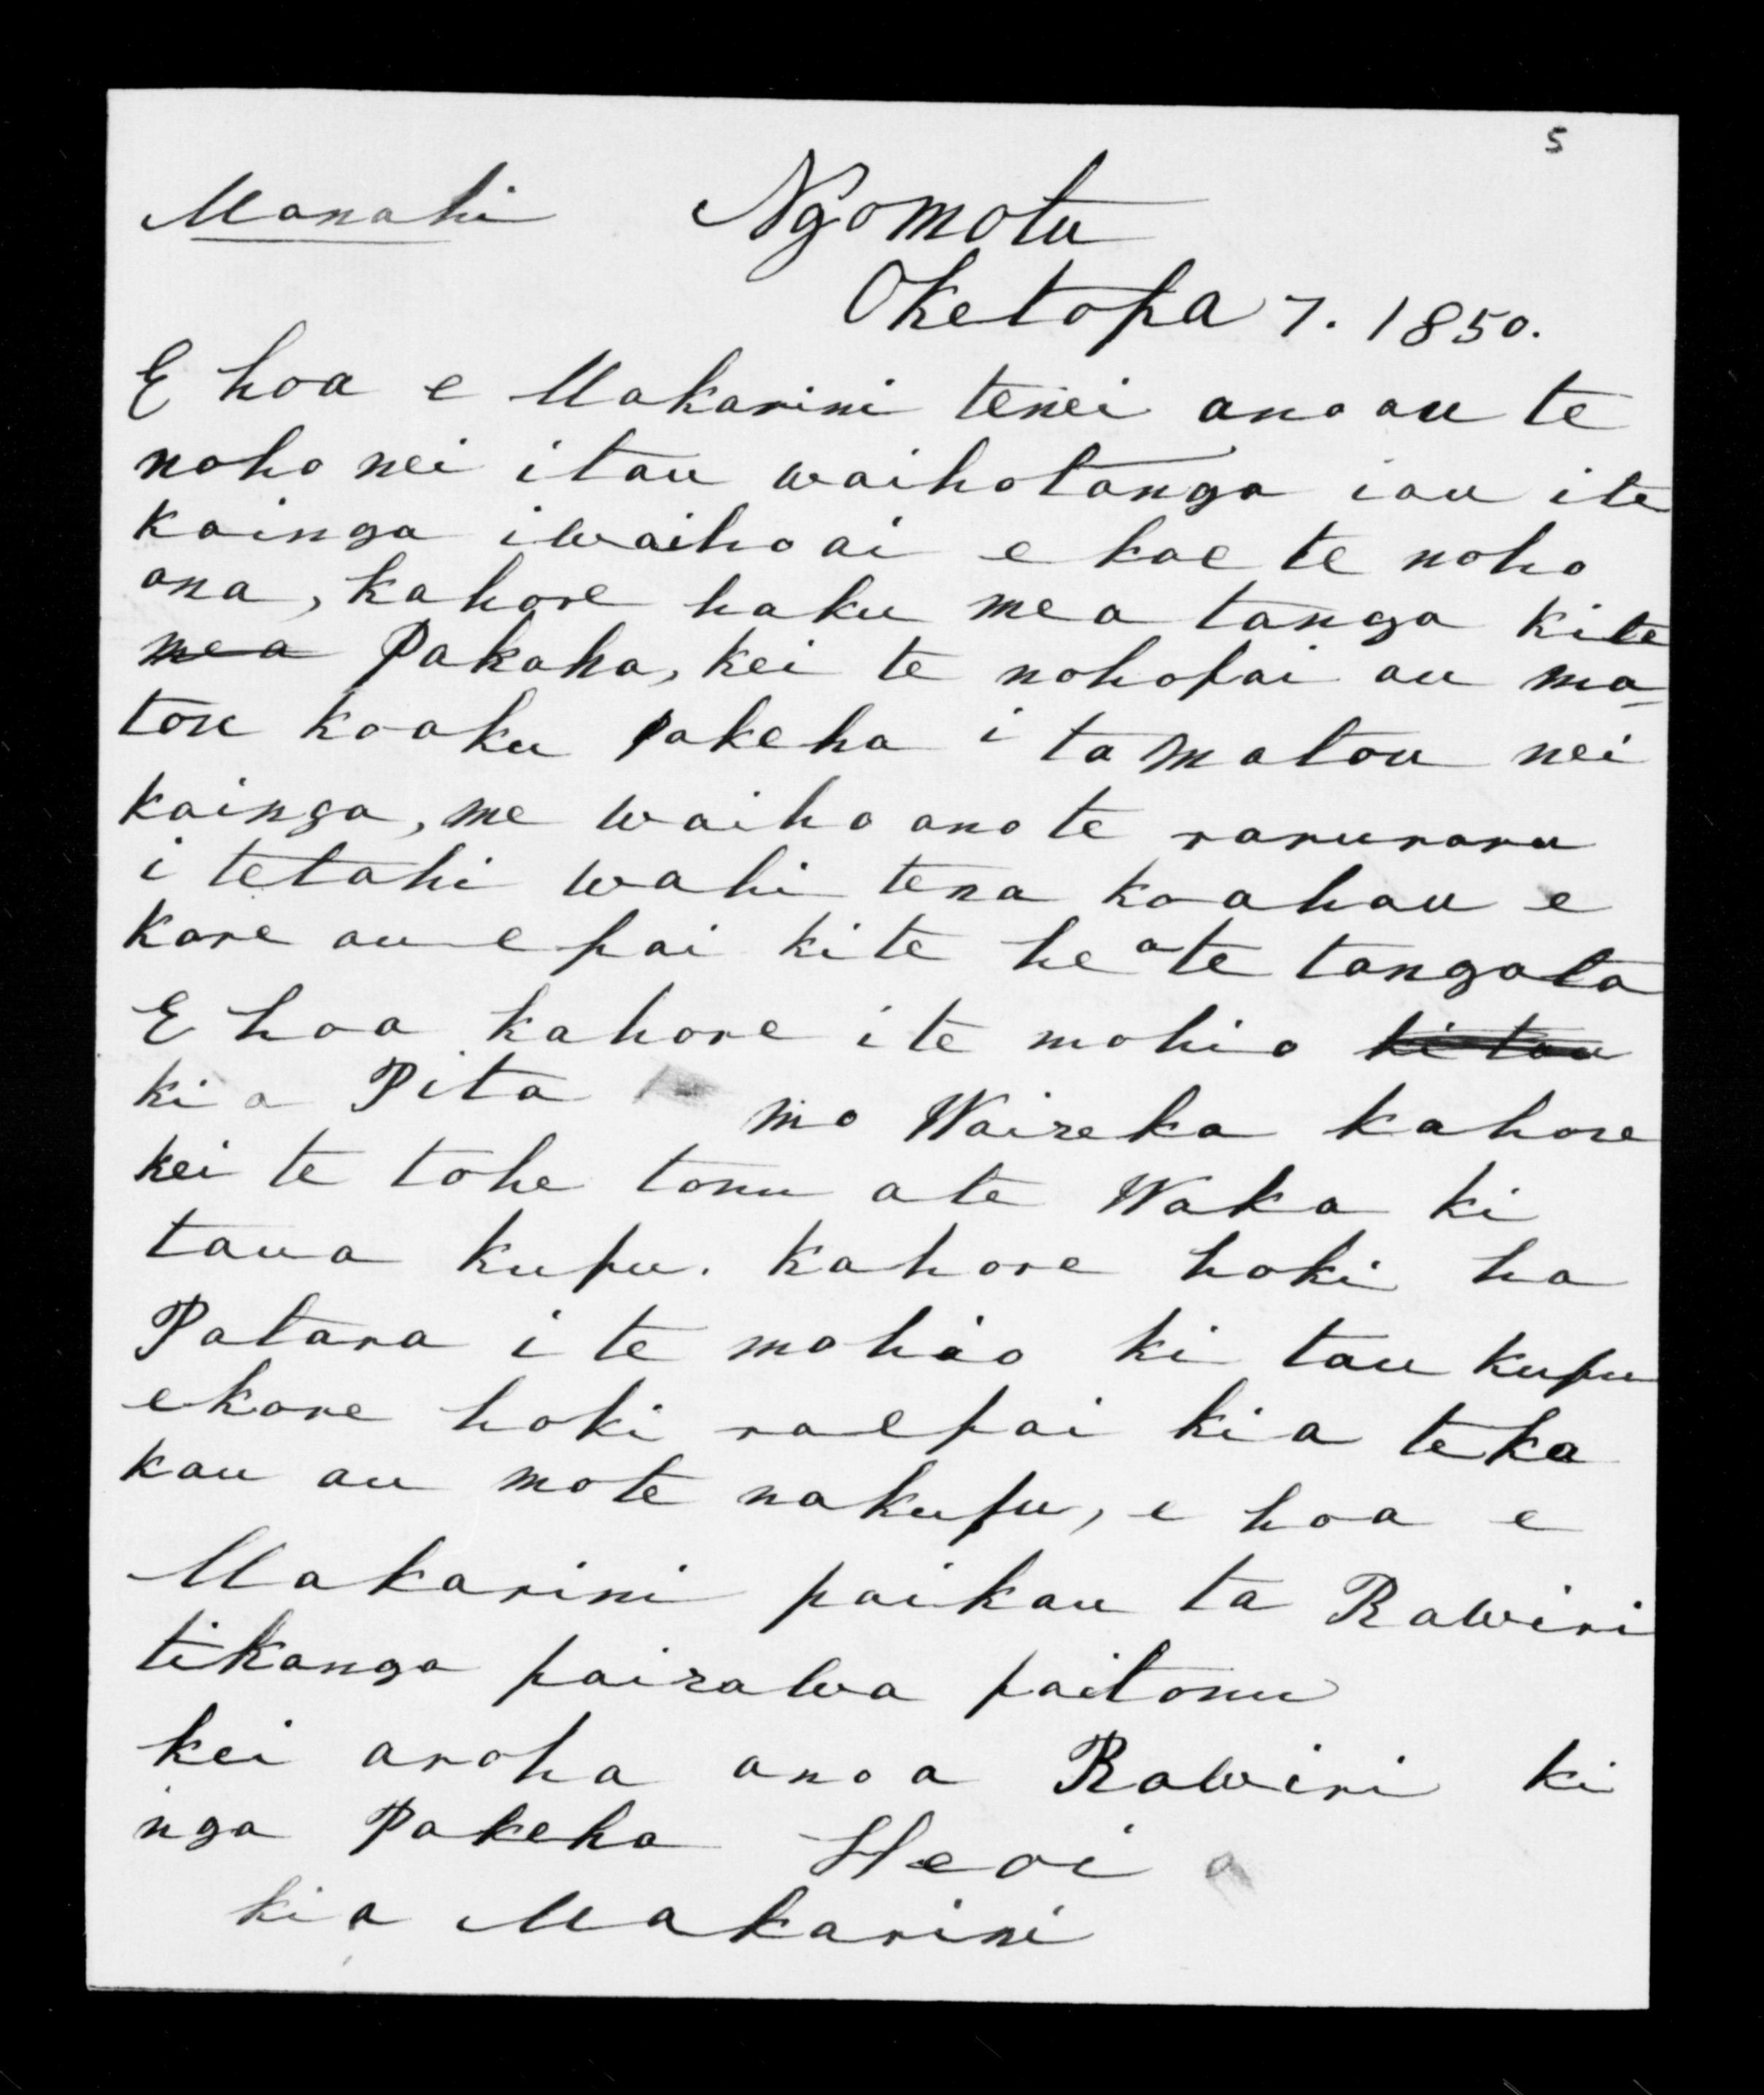 5
Manahi Ngamotu
Oketopa 7. 1850.
E hoa e Makarini tenei ano au te
noho nei itau waihotanga iau ite
kainga iwaiho ai e koe te noho
ana, kahore haku mea tanga kite
mea Pakaha, kei te nohopai au ma-
tou koaku pakeha i ta matou nei
kainga, me waiho ano te raruraru
i tetahi wahi tena ko ahau e
kore au e pai kite he a te tangata
E hoa kahore ite mohio ki tau
kia Pita mo Waireka kahore
kei te tohe tonu ate Waka ki
taua kupu. kahore hoki ha
Patara i te mohio ki tau kupu
ekore hoki ra e pai kia teka
kau au mote nakupu, e hoa e
Makarini paikau ta Rawiri
tikanga pairawa paitonu
kei aroha ano a Rawiri ki
nga Pakeha Heoi
kia Makarini